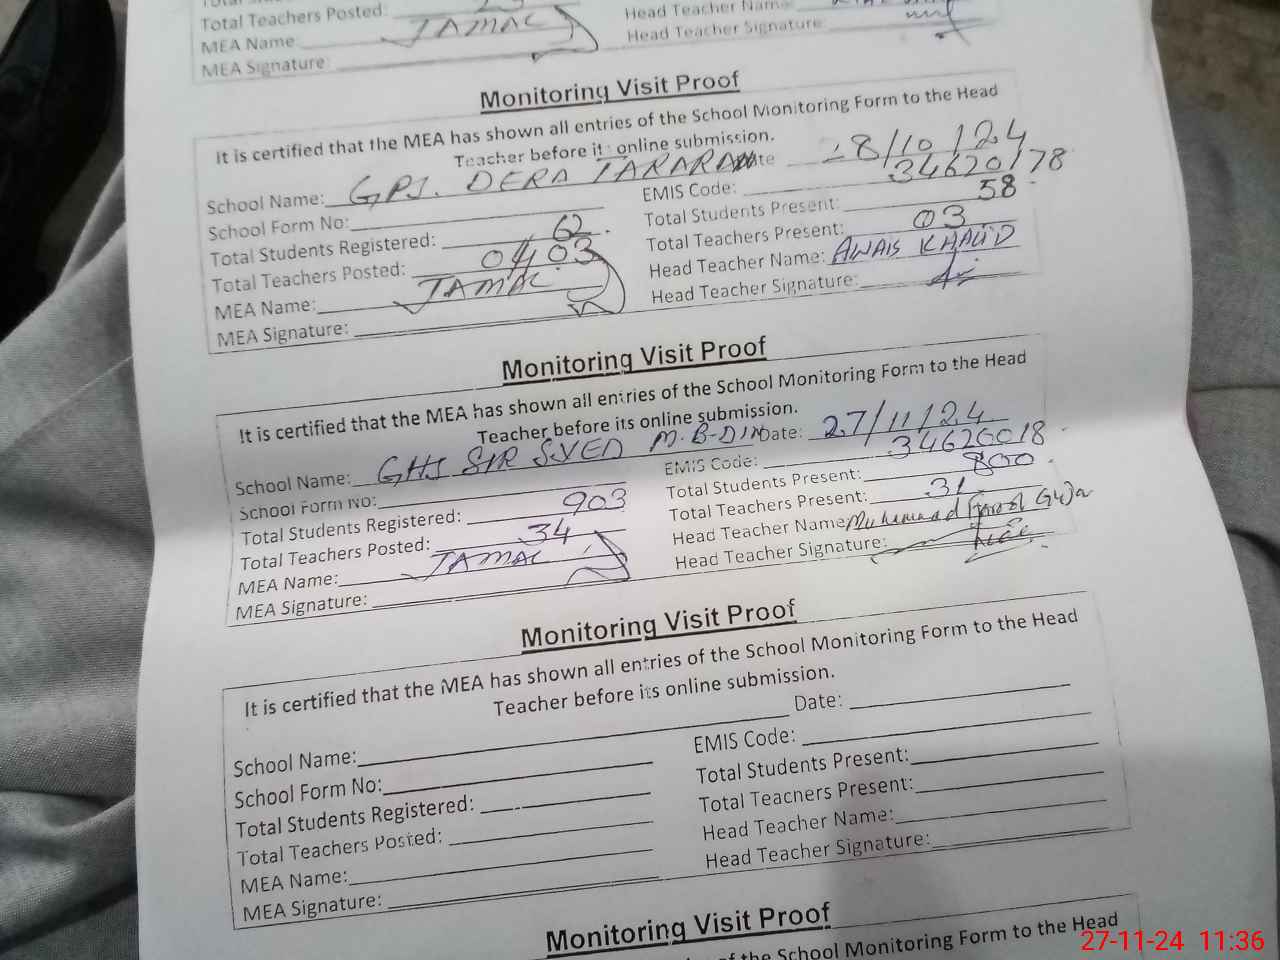 Total Teachers Posted:
MEA Name: JAMAL
MEA Signature:
Head Teacher Name:
Head Teacher Signature:
Monitoring Visit Proof
It is certified that the MEA has shown all entries of the School Monitoring Form to the Head
Teacher before its online submission.
School Name: GPS. DERA TARARAN Date 28/10/24
School Form No: EMIS Code: 34620178
Total Students Registered: 62 Total Students Present: 58
Total Teachers Posted: 04 03 Total Teachers Present: 03
MEA Name: JAMAL Head Teacher Name: AWAIS KHALID
MEA Signature: Head Teacher Signature:
Monitoring Visit Proof
It is certified that the MEA has shown all entries of the School Monitoring Form to the Head
Teacher before its online submission.
School Name: GHS SIR SYED M.B-DIN Date: 27/11/24
School Form No: EMIS Code: 34620018
Total Students Registered: 903 Total Students Present: 800
Total Teachers Posted: 34 Total Teachers Present: 31
MEA Name: JAMAL Head Teacher Name: Muhammad
MEA Signature: Head Teacher Signature:
Monitoring Visit Proof
It is certified that the MEA has shown all entries of the School Monitoring Form to the Head
Teacher before its online submission.
School Name: Date:
School Form No: EMIS Code:
Total Students Registered: Total Students Present:
Total Teachers Posted: Total Teachers Present:
MEA Name: Head Teacher Name:
MEA Signature: Head Teacher Signature:
Monitoring Visit Proof
of the School Monitoring Form to the Head
27-11-24 11:36